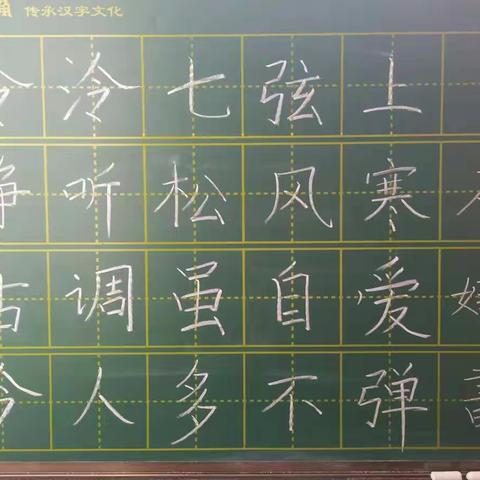 传承汉字文化
泠泠七弦上
静听松风寒
古调虽自爱
今人多不弹